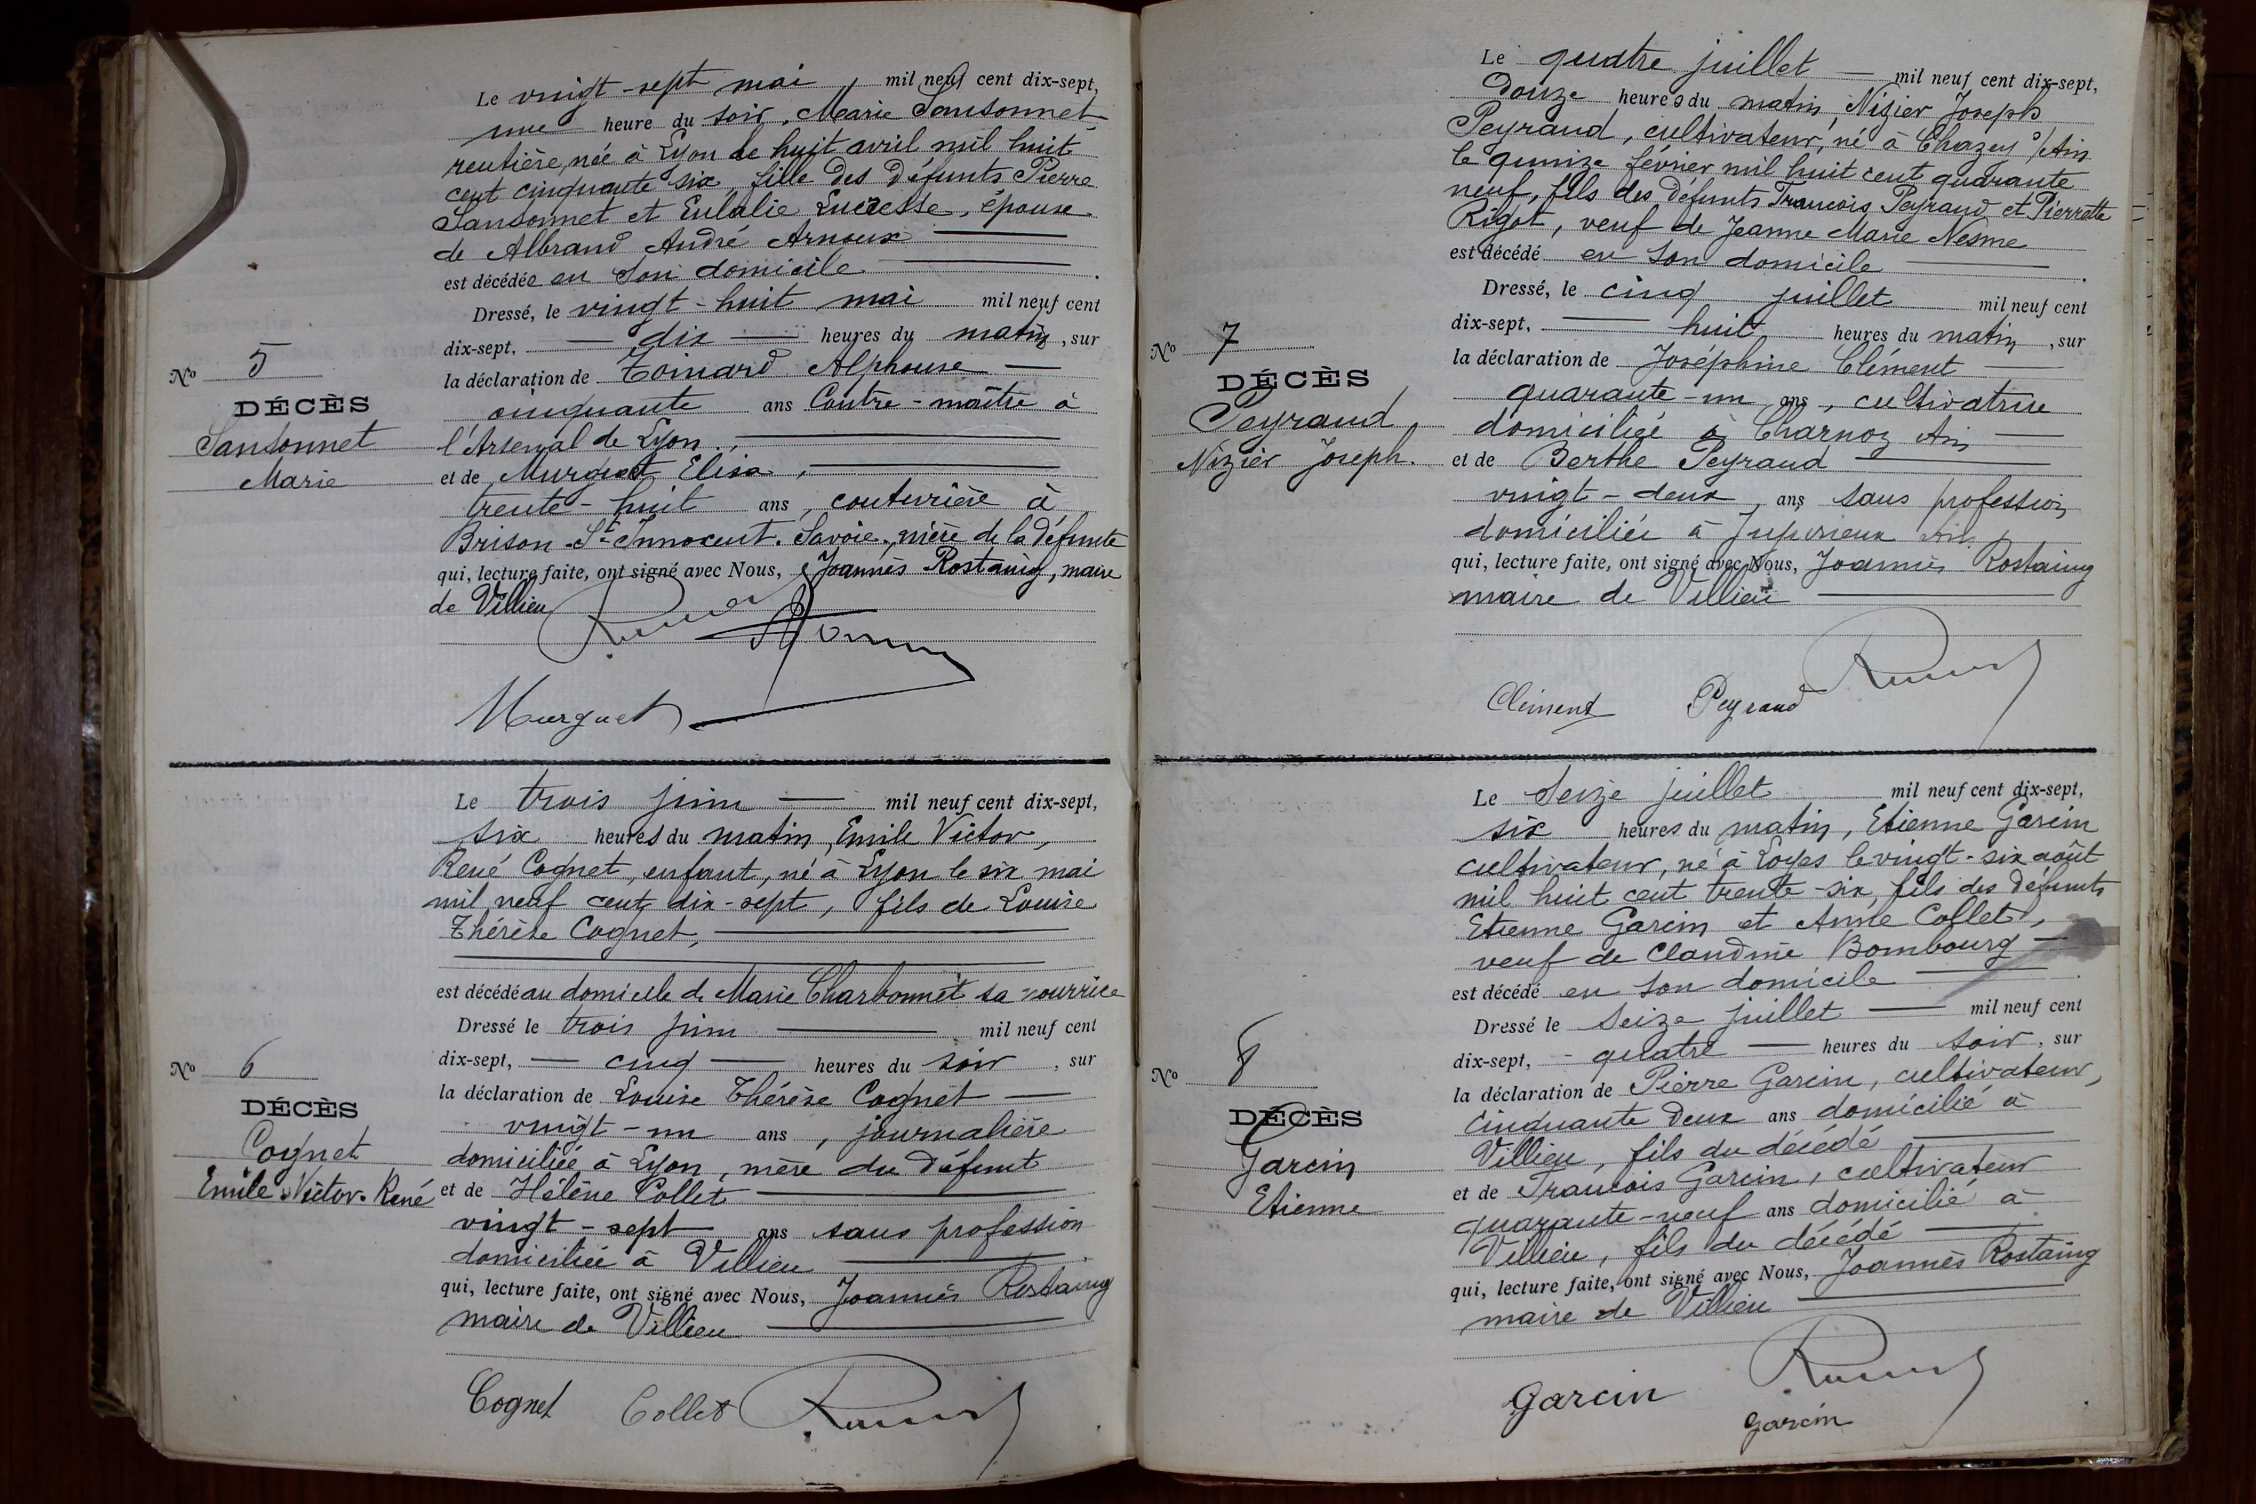 Le vingt-sept mai, mil neuf cent dix-sept,
une heure du soir, Marie Sansonnet
rentière, née à Lyon le huit avril mil huit
cent cinquante six, fille des défunts Pierre
Sansonnet et Eulalie Lucresse, épouse
de Albrand André Arnoux
est décédée en son domicile
Dressé, le vingt-huit mai mil neuf cent
dix-sept, dix heures du matin, sur
la déclaration de Toinard Alphonse
cinquante ans Contre-maître à
l'Arsenal de Lyon,
et de Murguet Elisa,
trente-huit ans, couturière à
Brison-St-Innocent. Savoie, nièce de la défunte
qui, lecture faite, ont signé avec Nous, Joannès Rostaing, maire
de Villieu
Murguet
No 5
DÉCÈS
Sansonnet
Marie
Le trois juin mil neuf cent dix-sept,
six heures du matin, Emile Victor,
René Cognet, enfant, né à Lyon le six mai
mil neuf cent dix-sept, fils de Louise
Thérèse Cognet,
est décédé au domicile de Marie Charbonnet sa nourrice
Dressé le trois juin mil neuf cent
dix-sept, cinq heures du soir, sur
la déclaration de Louise Thérèse Cognet
vingt-un ans, journalière
domiciliée à Lyon, mère du défunt
et de Hélène Collet
vingt-sept ans sans profession
domiciliée à Villieu
qui, lecture faite, ont signé avec Nous, Joannès Rostaing
maire de Villieu
Cognet Collet
No 6
DÉCÈS
Cognet
Emile Victor René
Le quatre juillet mil neuf cent dix-sept,
Douze heures du matin, Nizier Joseph
Peyraud, cultivateur, né à Chazey s/Ain
le quinze février mil huit cent quarante
neuf, fils des défunts François Peyraud et Pierrette
Rigot, veuf de Jeanne Marie Nesme
est décédé en son domicile
Dressé, le cinq juillet mil neuf cent
dix-sept, huit heures du matin, sur
la déclaration de Joséphine Clément
quarante-un ans, cultivatrice
domiciliée à Charnoz Ain
et de Berthe Peyraud
vingt-deux ans sans profession
domiciliée à Jujurieux Ain
qui, lecture faite, ont signé avec Nous, Joannès Rostaing
maire de Villieu
Clément Peyraud
No 7
DÉCÈS
Peyraud
Nizier Joseph.
Le Seize juillet mil neuf cent dix-sept,
six heures du matin, Etienne Garcin
cultivateur, né à Loyes le vingt-six août
mil huit cent trente-six, fils des défunts
Etienne Garcin et Anne Collet,
veuf de Claudine Bombourg
est décédé en son domicile
Dressé le Seize juillet mil neuf cent
dix-sept, quatre heures du soir, sur
la déclaration de Pierre Garcin, cultivateur,
cinquante deux ans domicilié à
Villieu, fils du décédé
et de François Garcin, cultivateur
quarante-neuf ans domicilié à
Villieu, fils du décédé
qui, lecture faite, ont signé avec Nous, Joannès Rostaing
maire de Villieu
Garcin
Garcin
No 8
DÉCÈS
Garcin
Etienne